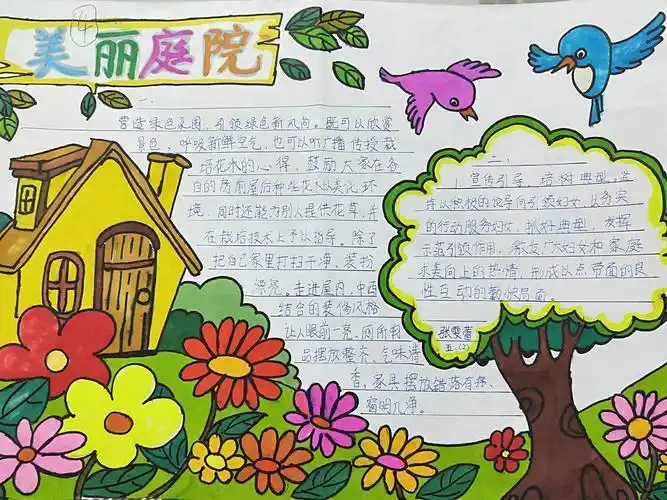 4
美丽庭院
一、
营造绿色氛围，引领绿色新风尚。既可以欣赏
景色、呼吸新鲜空气，也可以听广播传授栽
培花木的心得，鼓励大家在各
自的房前屋后种些花木以美化环
境，同时还能为别人提供花草，并
在栽培技术上予以指导。除了
把自己家里打扫干净，装扮
漂亮。走进屋内，中西
结合的装修风格
让人眼前一亮，厕所用
品摆放整齐、气味清
香，家具摆放错落有序、
窗明几净。
二、
1.宣传引导，培树典型，坚
持以积极的论导向引领妇女，以务实
的行动服务妇女，抓好典型，发挥
示范引领作用，激发广大妇女和家庭
求美向上的热情，形成以点带面的良
性互动的勤快局面。
张雯蕾
五(2)